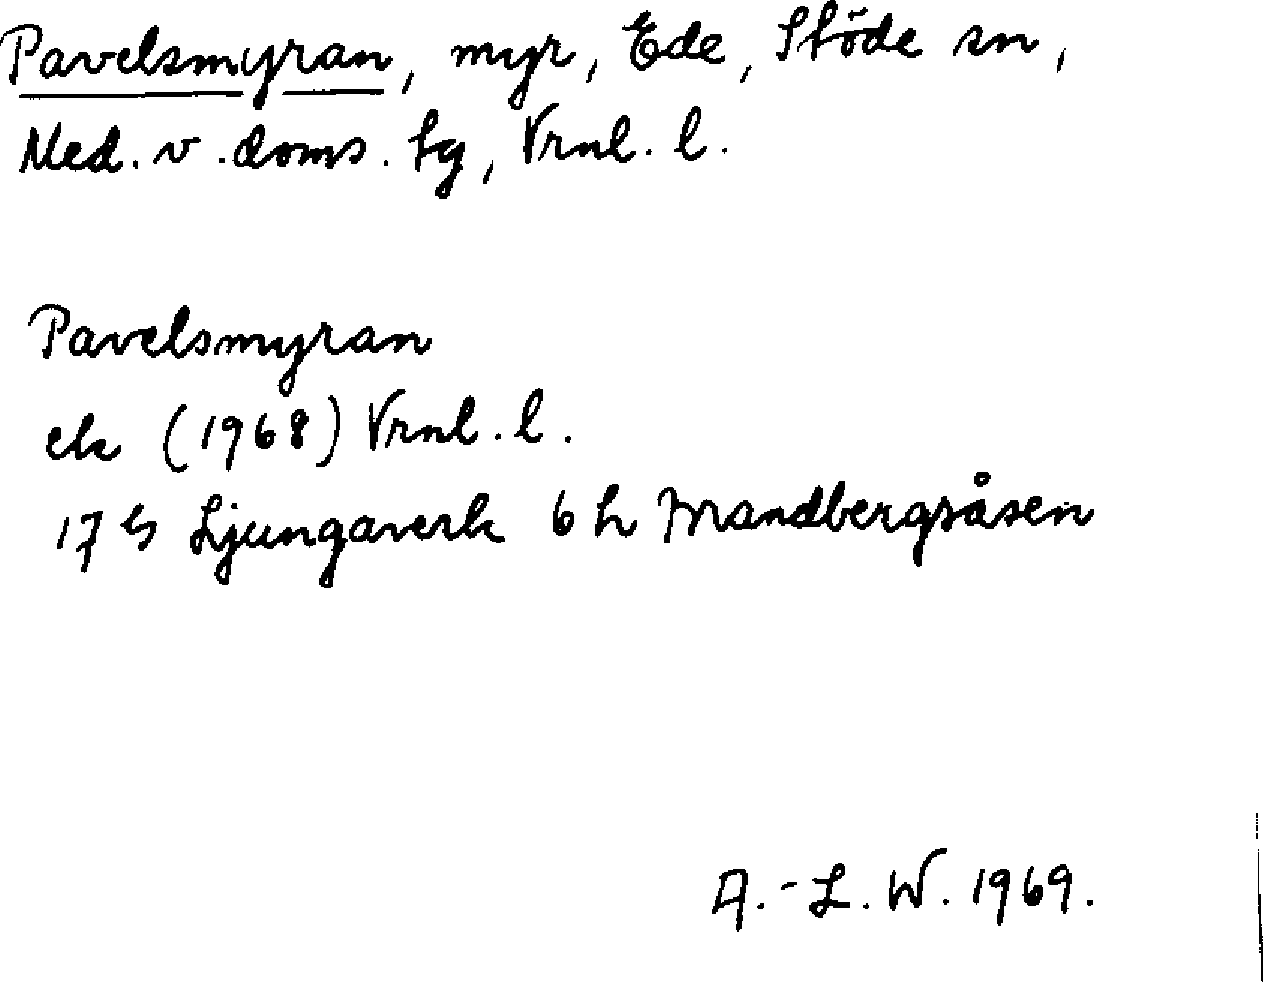 Pavelsmyran, myr, Ede, Stöde sn,
Med. v. doms. tg, Vrnl. l.
Pavelsmyran
ek (1968) Vrnl. l.
17 G Ljungaverk 6 h Mandbergsåsen
A.-L. W. 1969.